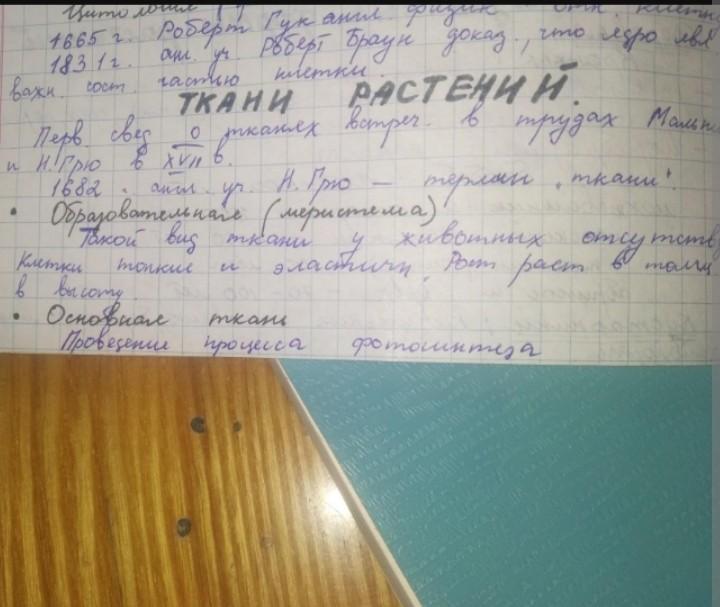 Цитология
1665 г. Роберт Гук англ. физик - отк. клетк
1831 г. анг. уч. Роберт Браун доказ., что ядро явл
важн. сост. частью клетки.
ТКАНИ РАСТЕНИЙ.
Перв. свед о тканях встреч. в трудах Мальп
и Н.Грю в XVII в.
1682. англ. уч. Н. Грю — термин "ткани".
• Образовательная (меристема)
Такой вид ткани у животных отсутств
Клетки тонкие и эластичн. Рост раст в толщ
в высоту.
• Основная ткань
Проведение процесса фотосинтеза